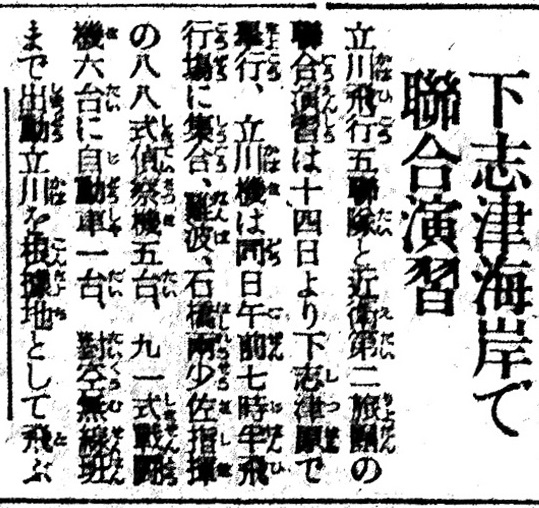 下志津海岸で
聯合演習
立川飛行五聯隊と近衛第二旅團の
聯合演習は十四日より下志津原で
擧行、立川機は同日午前七時半飛
行場に集合、難波、石橋兩少佐指揮
の八八式偵察機五台、九一式戰鬪
機六台に自動車一台、對空無線班
まで出動立川を根據地として飛ぶ